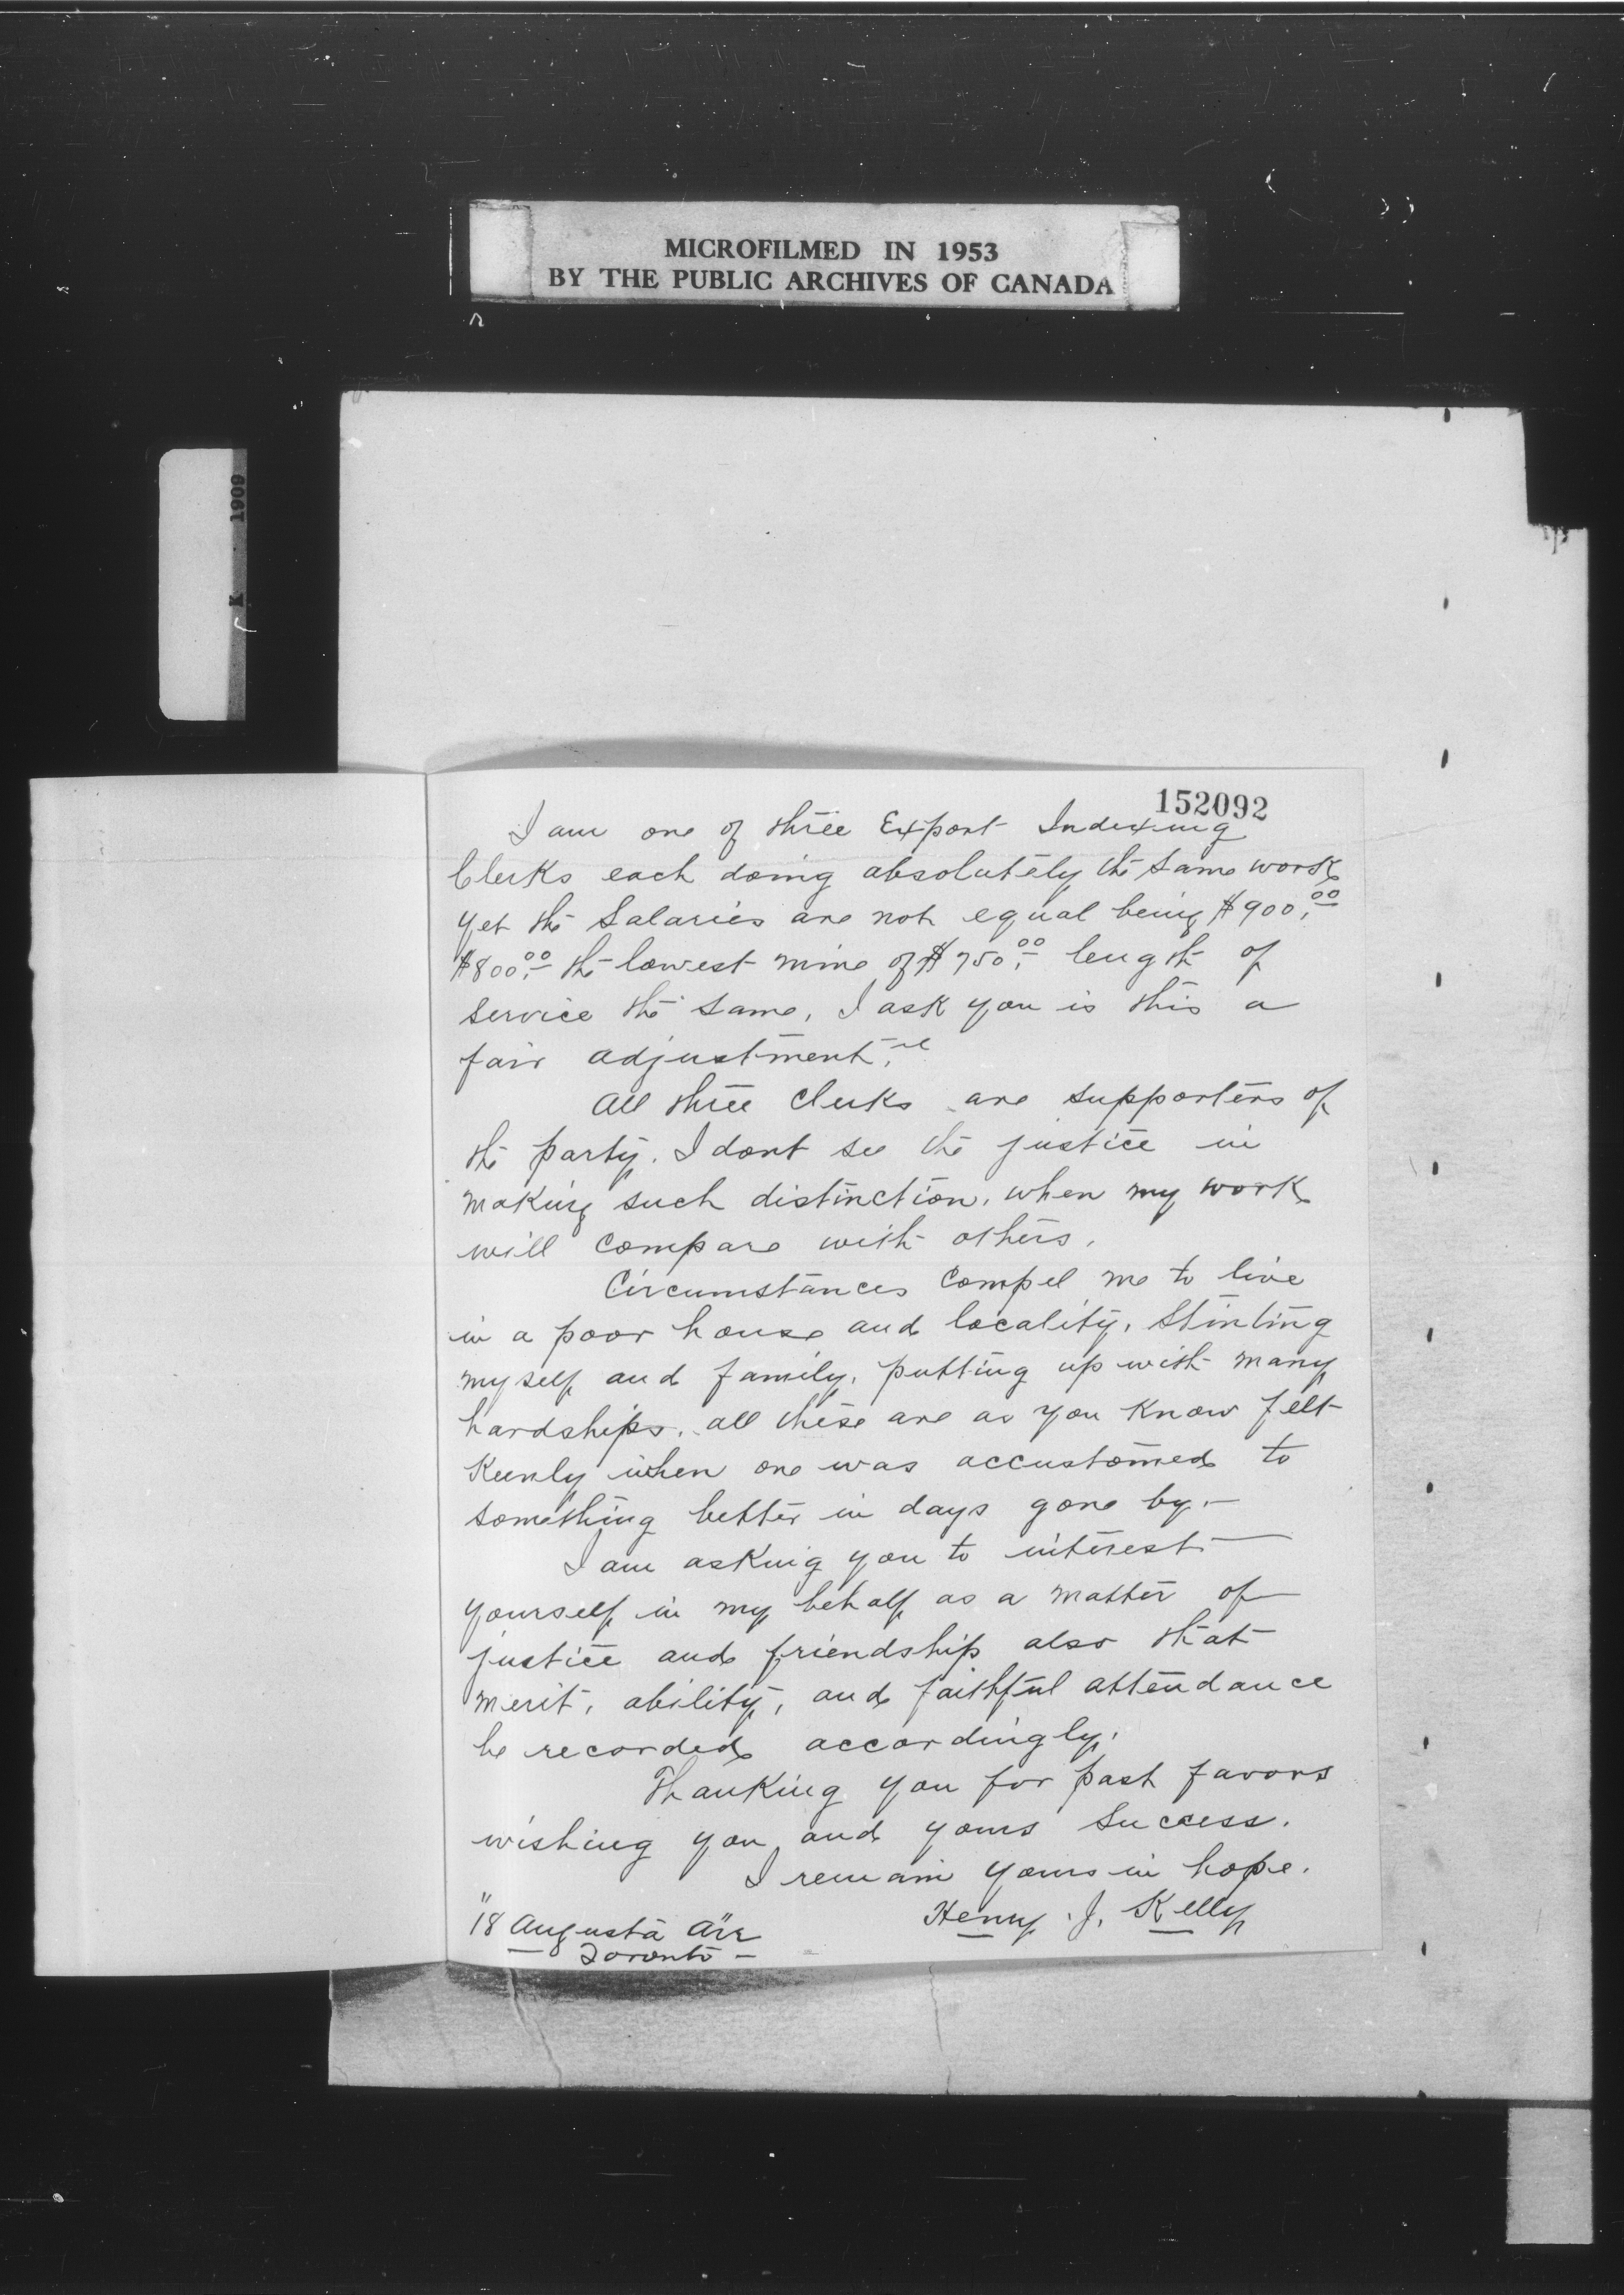 MICROFILMED IN 1953
BY THE PUBLIC ARCHIVES OF CANADA
1909
152092
I am one of three Export Indexing
Clerks each doing absolutely the same work
yet the salaries are not equal being $900.00
$800.00 the lowest mine of $750.00 length of
service the same, I ask you is this a
fair adjustment.
All three Clerks are supporters of
the party. I dont see the justice in
making such distinction, when my work
will compare with others.
Circumstances Compel me to live
in a poor house and locality, stinting
myself and family, putting up with many
hardships, all these are as you know felt
Keenly when one was accustomed to
something better in days gone by.—
I am asking you to interest
yourself in my behalf as a matter of
justice and friendship also that
merit, ability, and faithful attendance
be recorded accordingly.
Thanking you for past favors
wishing you and yours success.
I remain yours in hope.
Henry J. Kelly
"18 Augusta Ave
— Toronto —